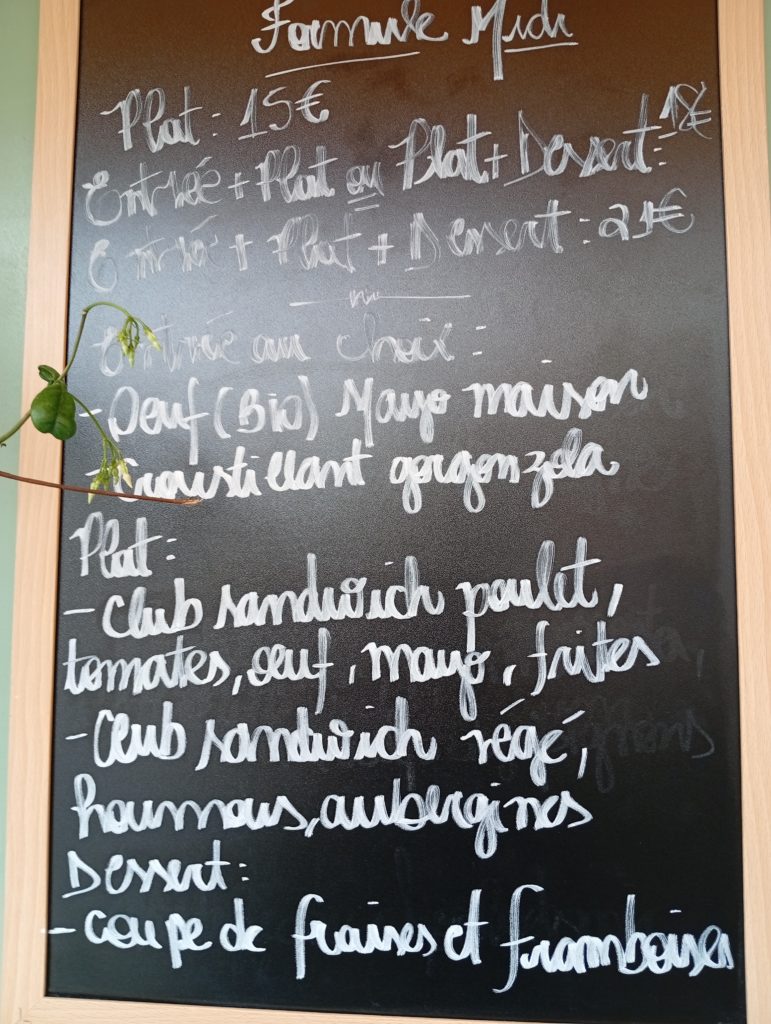 Formule Midi
Plat : 15€
Entrée + Plat ou Plat + Dessert : 18€
Entrée + Plat + Dessert : 21€
Entrée au choix :
- Oeuf (Bio) Mayo maison
- Croustillant gorgonzola
Plat :
- Club sandwich poulet,
tomates, oeuf, mayo, frites
- Club sandwich végé,
houmous, aubergines
Dessert :
- coupe de fraises et framboises